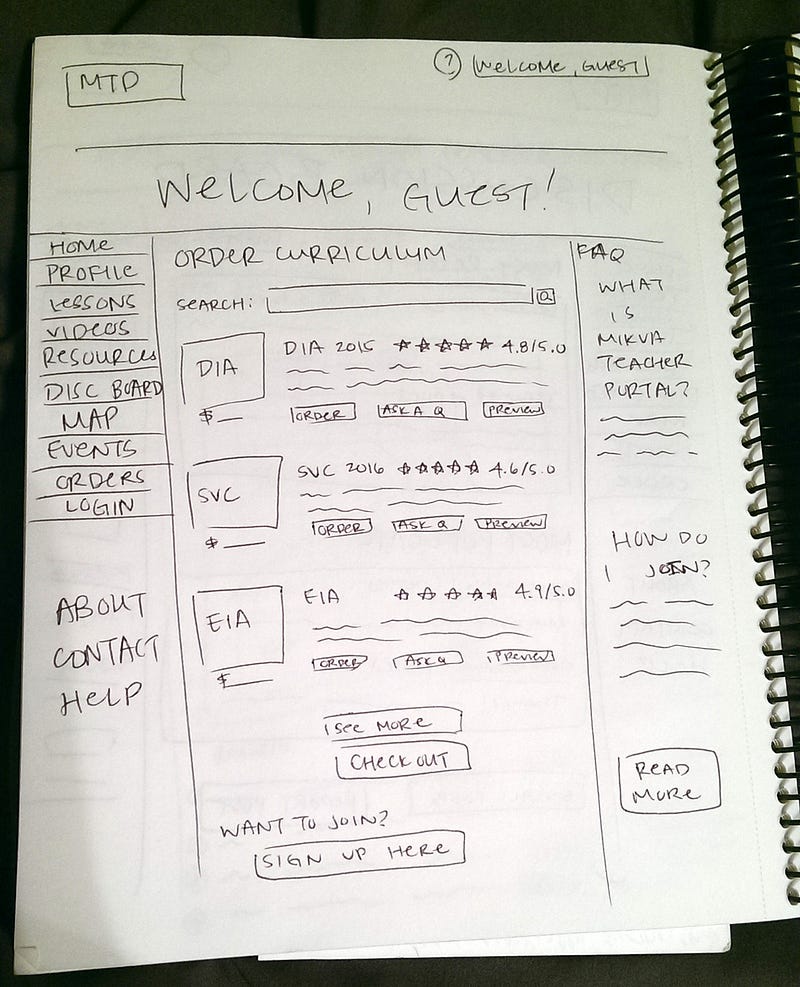 MTP
? Welcome, Guest
Welcome, Guest!
Home
Profile
Lessons
Videos
Resources
Disc Board
Map
Events
Orders
Login
About
Contact
Help
Order Curriculum
Search:
DIA
$
DIA 2015 ☆☆☆☆☆ 4.8/5.0
Order Ask a Q Preview
SVC
$
SVC 2016 ☆☆☆☆☆ 4.6/5.0
Order Ask Q Preview
EIA
$
EIA ☆☆☆☆☆ 4.9/5.0
Order Ask Q Preview
See More
Check out
Want to join?
Sign up here
FAQ
What
is
Mikva
Teacher
Portal?
How do
I join?
Read
More